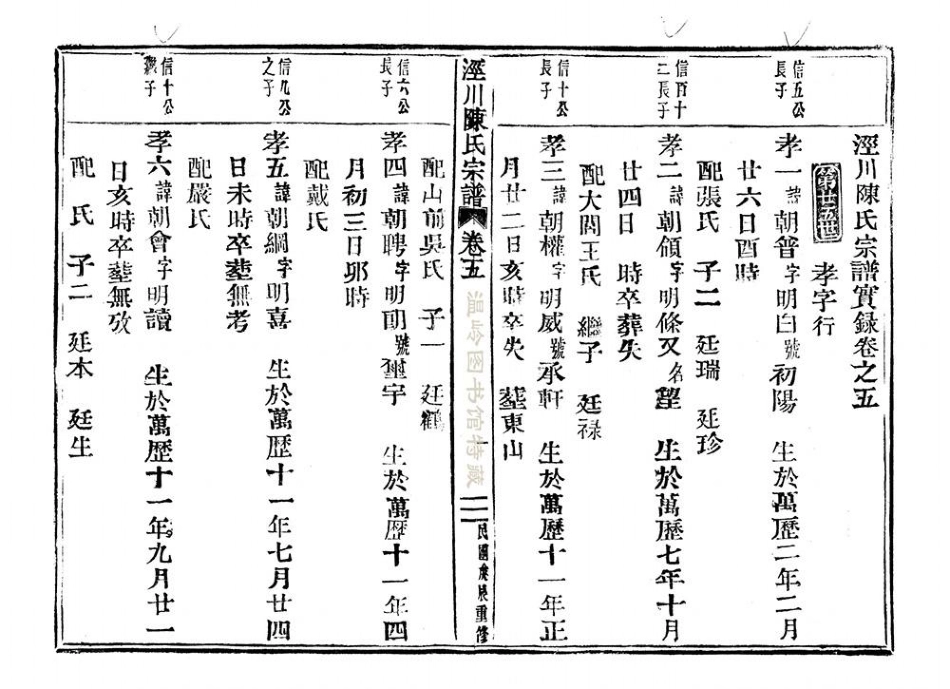 涇川陳氏宗譜實録卷之五
第廿五世 孝字行
信五公長子
孝一 諱朝普字明白號初陽 生於萬歷二年二月
廿六日酉時
配張氏 子二 廷瑞 廷珍
信百十二長子
孝二 諱朝領字明條又名 生於萬歷七年十月
廿四日 時卒葬失
配大閭王氏 繼子 廷禄
信十公長子
孝三 諱朝權字明威號承軒 生於萬歷十一年正
月廿二日亥時卒失 塟東山
涇川陳氏宗譜 卷五
温岭图书馆特藏
一
民國庚辰重修
配山前吳氏 子一 廷鶴
信六公長子
孝四 諱朝聘字明 號璽宇 生於萬歷十一年四
月初三日夘時
配戴氏
信九公之子
孝五 諱朝綱字明喜 生於萬歷十一年七月廿四
日未時卒塟無考
配嚴氏
信十公繼子
孝六 諱朝會字明讀 生於萬歷十一年九月廿一
日亥時卒塟無攷
配 氏 子二 廷本 廷生